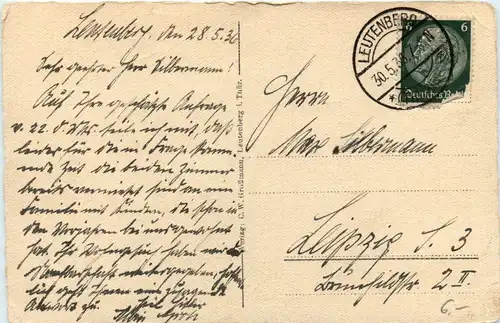 Leutenberg, den 28.5.36
Sehr geehrter Herr Silbermann!
Auf Ihre geschätzte Anfrage
v. 22. d. Mts. teile ich mit, daß
leider für die in Frage komm-
ende Zeit die beiden Zimmer
bereits vermietet sind an eine
Familie mit Kindern, die schon in
den Vorjahren bei mir gewohnt
hat. Ihr
Antwort zu. Heil Hitler
Verlag: C. W. Großmann, Leutenberg i. Thür.
LEUTENBERG
30.5.36
6 6
Deutsches Reich
Herrn
Max Silbermann
Leipzig S. 3
2 II.
6.-